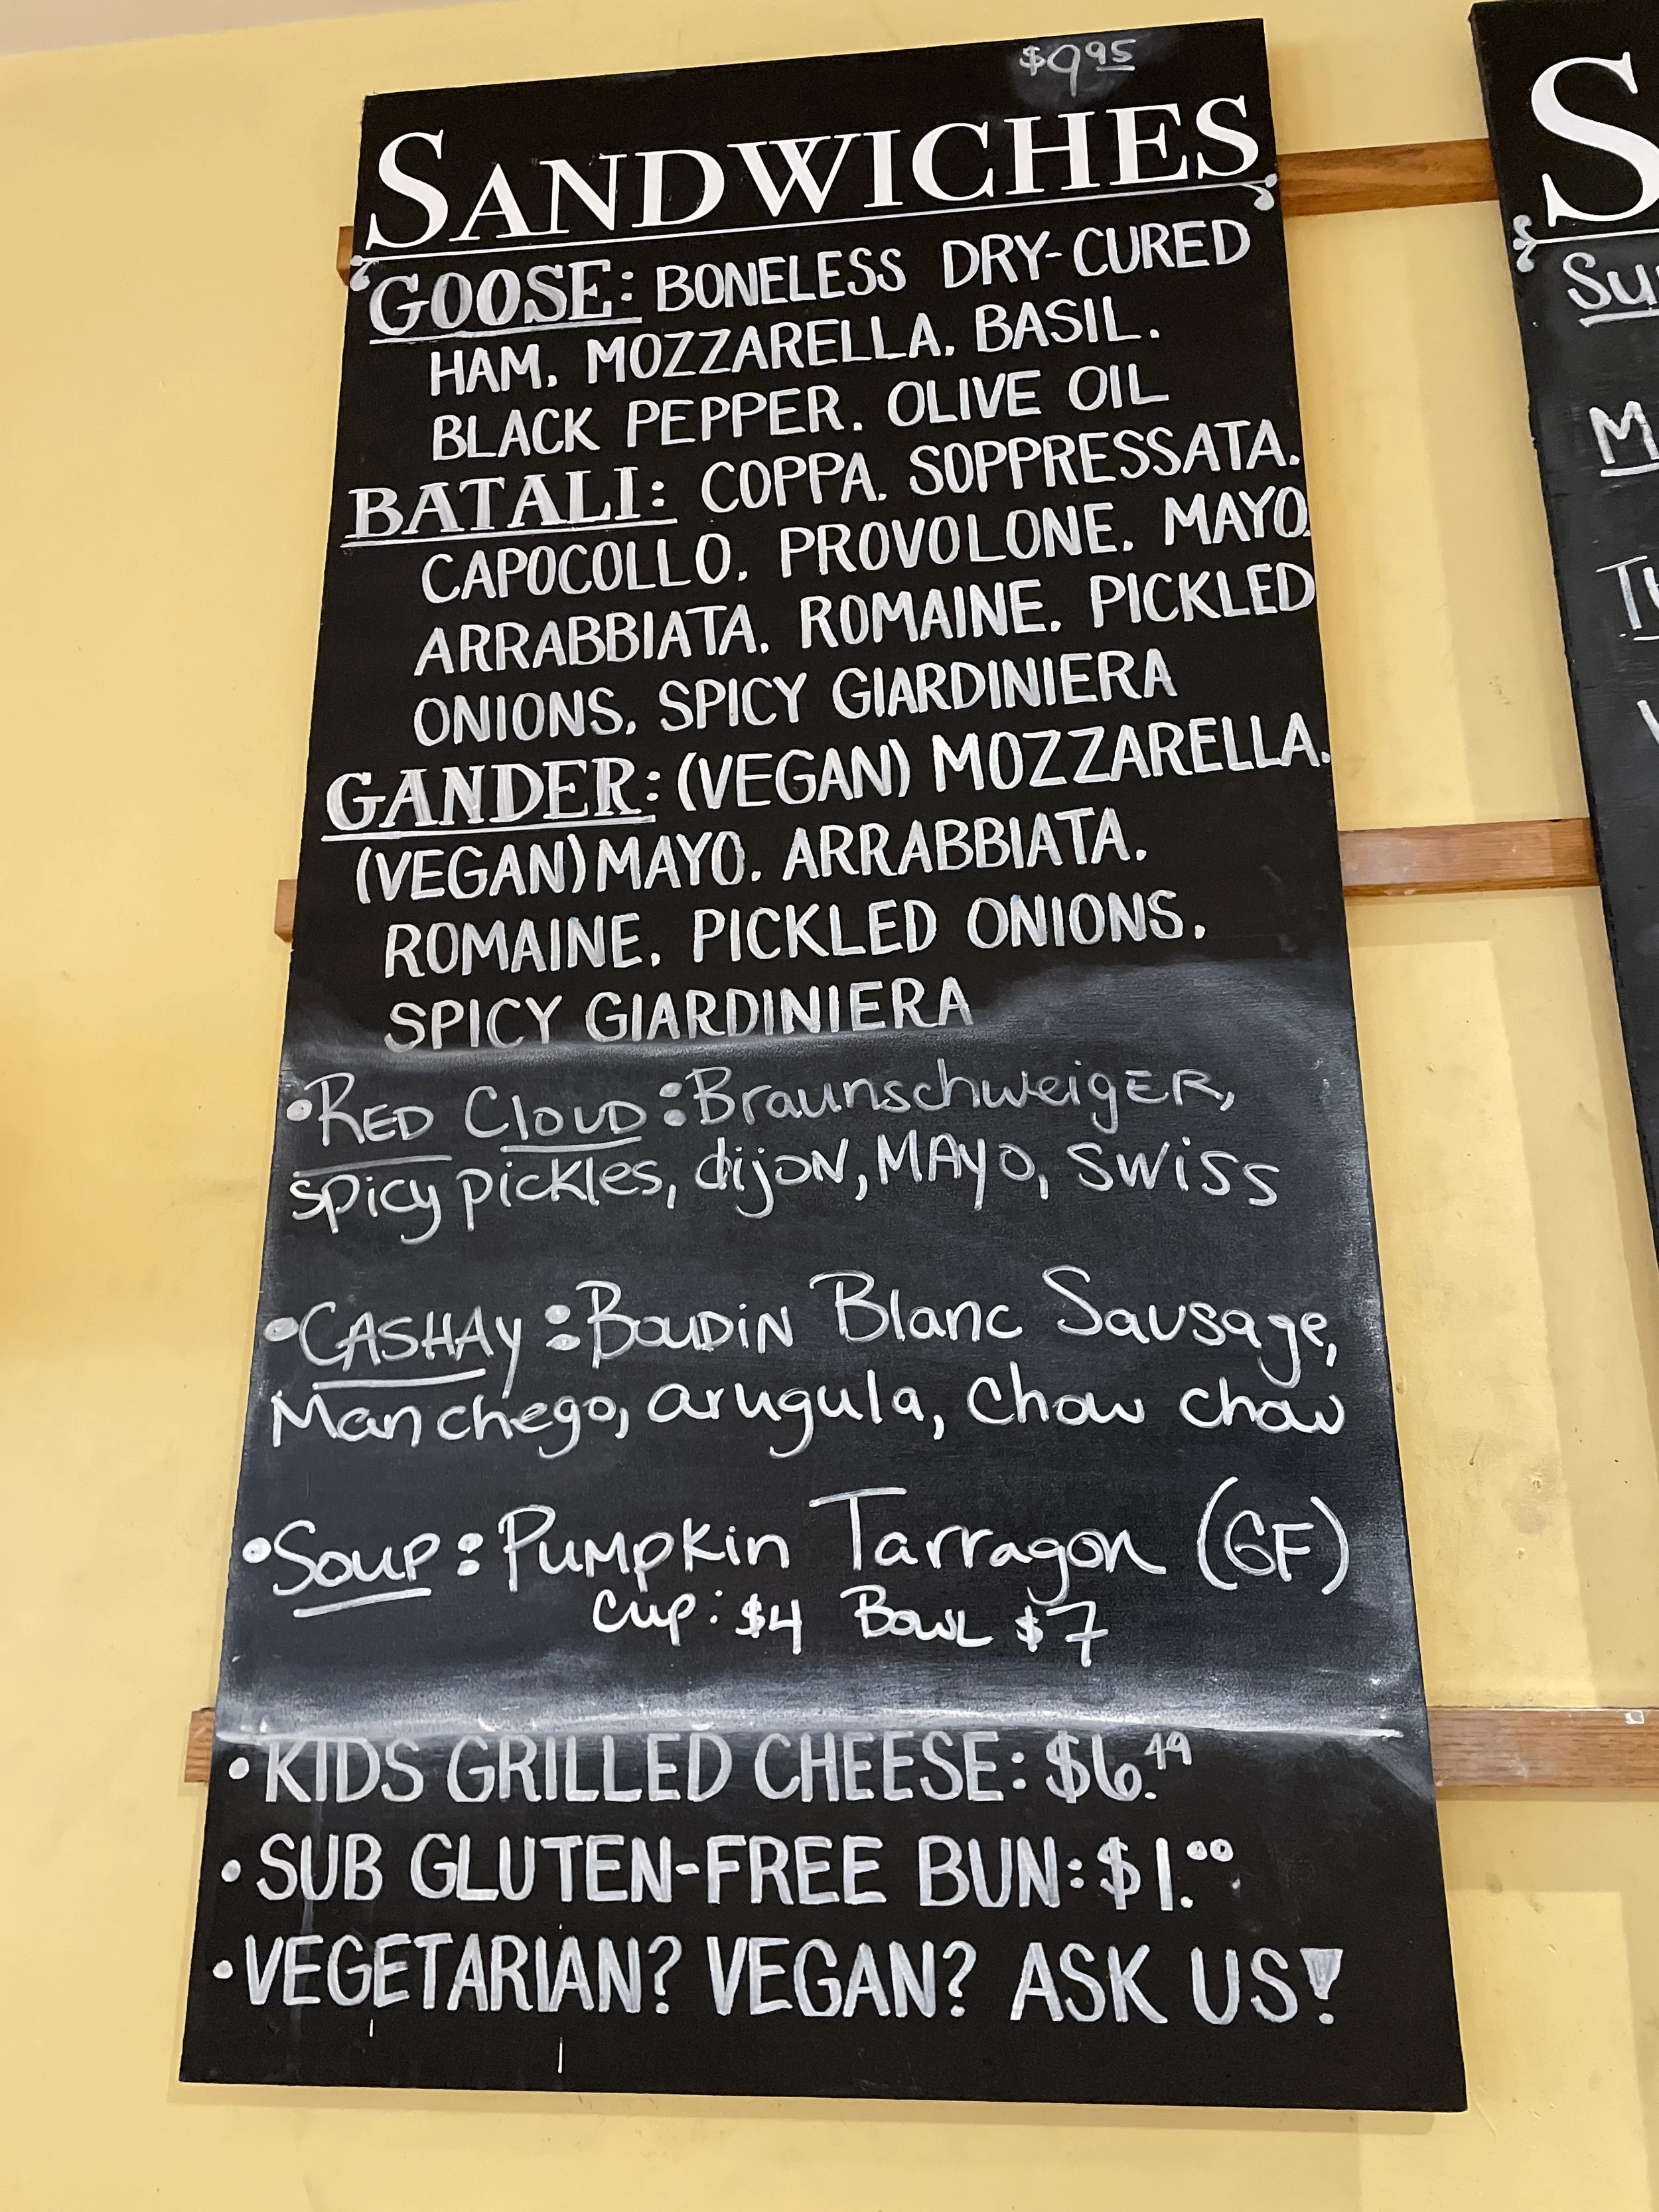 $9.95
SANDWICHES
GOOSE: BONELESS DRY-CURED
HAM. MOZZARELLA. BASIL.
BLACK PEPPER. OLIVE OIL
BATALI: COPPA. SOPPRESSATA.
CAPOCOLLO. PROVOLONE. MAYO.
ARRABBIATA. ROMAINE. PICKLED
ONIONS. SPICY GIARDINIERA
GANDER: (VEGAN) MOZZARELLA.
(VEGAN) MAYO. ARRABBIATA.
ROMAINE. PICKLED ONIONS.
SPICY GIARDINIERA
•RED CLOUD: BraunschweigER,
spicy pickles, dijoN, MAyo, swiss
•CASHAy: BOUDiN Blanc Sausage,
Manchego, arugula, chow chow
•Soup: Pumpkin Tarragon (GF)
Cup: $4 Bowl $7
•KIDS GRILLED CHEESE: $6.49
•SUB GLUTEN-FREE BUN: $1.00
•VEGETARIAN? VEGAN? ASK US!
S
Su
M